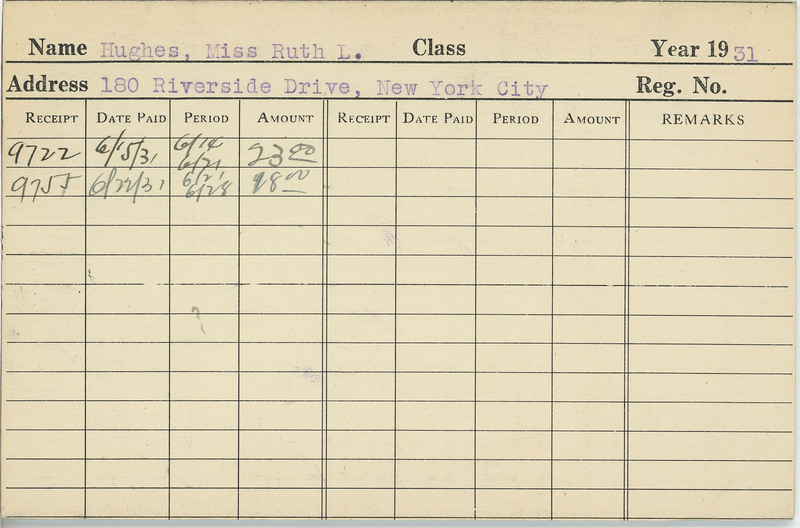 Name Hughes, Miss Ruth L. Class Year 1931
Address 180 Riverside Drive, New York City Reg. No.
RECEIPT DATE PAID PERIOD AMOUNT RECEIPT DATE PAID PERIOD AMOUNT REMARKS
9722 6/15/31 6/14 6/21 23.00
9755 6/22/31 6/21 6/28 18.00